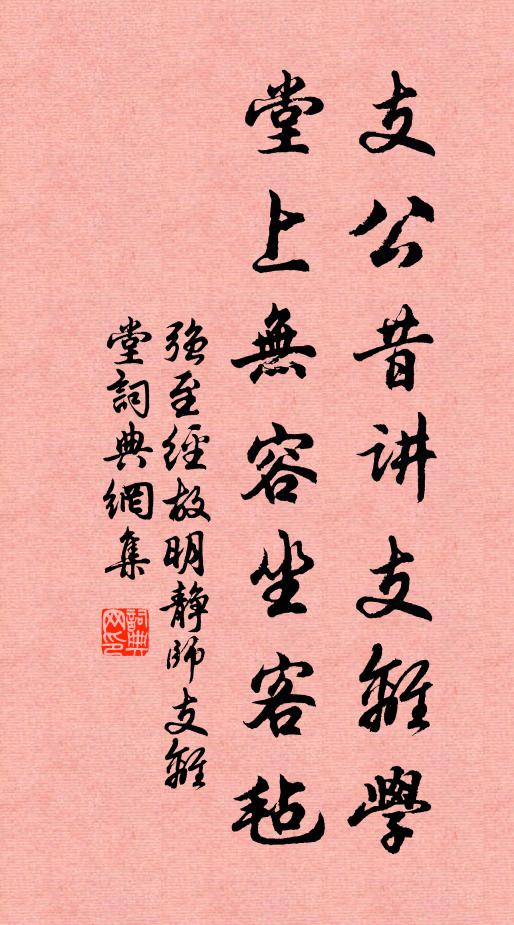 支公昔讲支離學
堂上無容坐客毡
強至經故明靜師支離
堂詞典網集
詞典网印